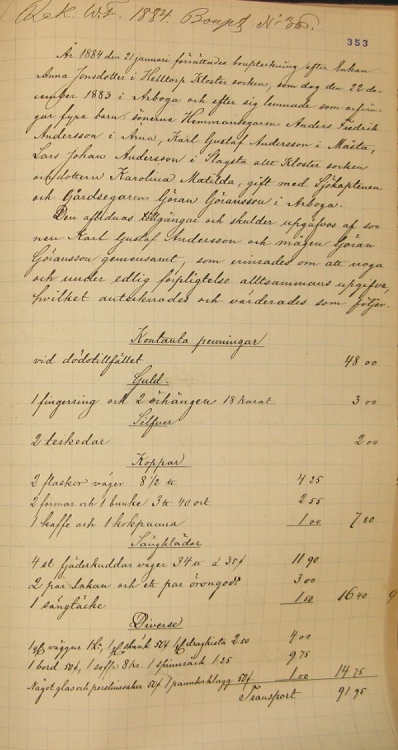 W.F. 1884. Boupt No 36.
353
År 1884 den 21 januari förrättades bouptekning efter Enkan
Anna Jonsdotter i Helltorp Kloster socken, som dog den 22 de-
cember 1883 i Arboga och efter sig lemnade som arfvin-
gar fyra barn: sönerna Hemmansegaren Anders Fredrik
Andersson i Anna, Karl Gustaf Andersson i Mästa,
Lars Johan Andersson i Slagsta allt Kloster socken
och dottern Karolina Matilda, gift med Sjökaptenen
och Gårdsegaren Göran Göransson i Arboga.
Den aflidnas tillgångar och skulder uppgåfvos af so-
nen Karl Gustaf Andersson och mågen Göran
Göransson gemensamt, som erinrades om att noga
och under edlig förpligtelse alltsammans uppgifva,
hvilket antecknades och värderades som följer.
Kontanta penningar
vid dödstillfället 48 00
Guld.
1 fingerring och 2 örhängen 18 karat 3 00
Silfver
2 teskedar 2 00
Koppar
2 flaskor väger 8 1/2 ℔ 4 25
2 formar och 1 bunke 3 ℔ 40 ort 2 55
1 kaffe och 1 kokpanna 1 00 7 80
Sängkläder
4 st fjäderkuddar väger 34 ℔ à 35 11 90
2 par lakan och ett par örongott 3 00
1 sängtäcke 1 50 16 40
Diverse
1 väggur 1 kr, 1 skänk 50 1 dragkista 2 50 4 00
1 bord 50, 1 soffa 8 kr. 1 spinnrock 1 25 9 75
Något glas och porslinssaker 50 1 pannkakslagg 50 1 00 14 75
Transport 91 95